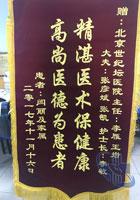 赠：北京世纪坛医院主任：李展 王岩
大夫：张彦斌 张凯 护士长：李敏
精湛医术保健康
高尚医德为患者
患者：闫丽及家属
二〇一七年十一月十六日